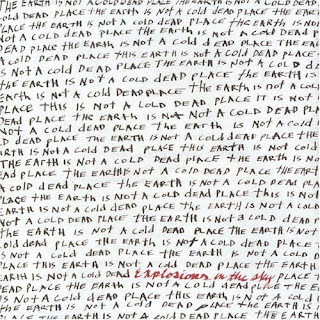 THE EARTH IS NOT A COLD DEAD PLACE THE EARTH IS NOT A COLD DEAD
PLACE THE EARTH IS NOT A COLD DEAD PLACE THE EARTH IS
NOT A COLD DEAD PLACE THE EARTH IS NOT A COLD DEAD P
DEAD PLACE THE EARTH IS NOT A COLD DEAD PLACE THE EAR
A COLD DEAD PLACE THIS EARTH IS NOT A COLD DEAD PLACE
IS NOT A COLD DEAD PLACE THE EARTH IS NOT A COLD D
THE EARTH IS NOT A COLD DEAD PLACE THE EARTH IS
EARTH IS NOT A COLD DEAD PLACE THE EARTH IS NOT A COLD
PLACE THIS IS NOT A COLD DEAD PLACE IT IS NOT
DEAD PLACE THE EARTH IS NOT A COLD DEAD PL
NOT A COLD DEAD PLACE THE EARTH IS NOT A COLD
D DEAD PLACE THE EARTH IS NOT A COLD DEAD PLACE THE
RTH IS NOT A COLD DEAD PLACE THIS EARTH IS NOT COLD
THE EARTH IS NOT A COLD DEAD PLACE THE EARTH IS NOT
EAD PLACE THE EARTH IS NOT A COLD DEAD PLACE THE EARTH
IS NOT A COLD DEAD PLACE THE EARTH IS NOT A COLD
EARTH IS NOT A COLD DEAD PLACE THE EARTH IS NOT A COLD DEAD
PLACE THE EARTH IS NOT A COLD DEAD PLACE THIS IS NOT
EARTH IS NOT A COLD DEAD PLACE THE EARTH IS NOT A COLD
NOT A COLD DEAD PLACE THE EARTH IS NOT A COLD DEAD
THE EARTH IS NOT A COLD DEAD PLACE THE EARTH IS NO
COLD DEAD PLACE THE EARTH IS NOT A COLD DEAD PLACE
IS NOT A COLD DEAD PLACE THE EARTH IS NOT A COLD DE
PLACE THIS EARTH IS NOT A COLD DEAD PLACE THE EARTH
EARTH IS NOT A COLD DEAD Explosions in the sky PLACE T
DEAD PLACE THE EARTH IS NOT A COLD DEAD PLACE THE
IS NOT A COLD DEAD PLACE THIS EARTH IS NOT A COLD D
THE EARTH IS NOT A COLD DEAD PLACE THE EARTH IS